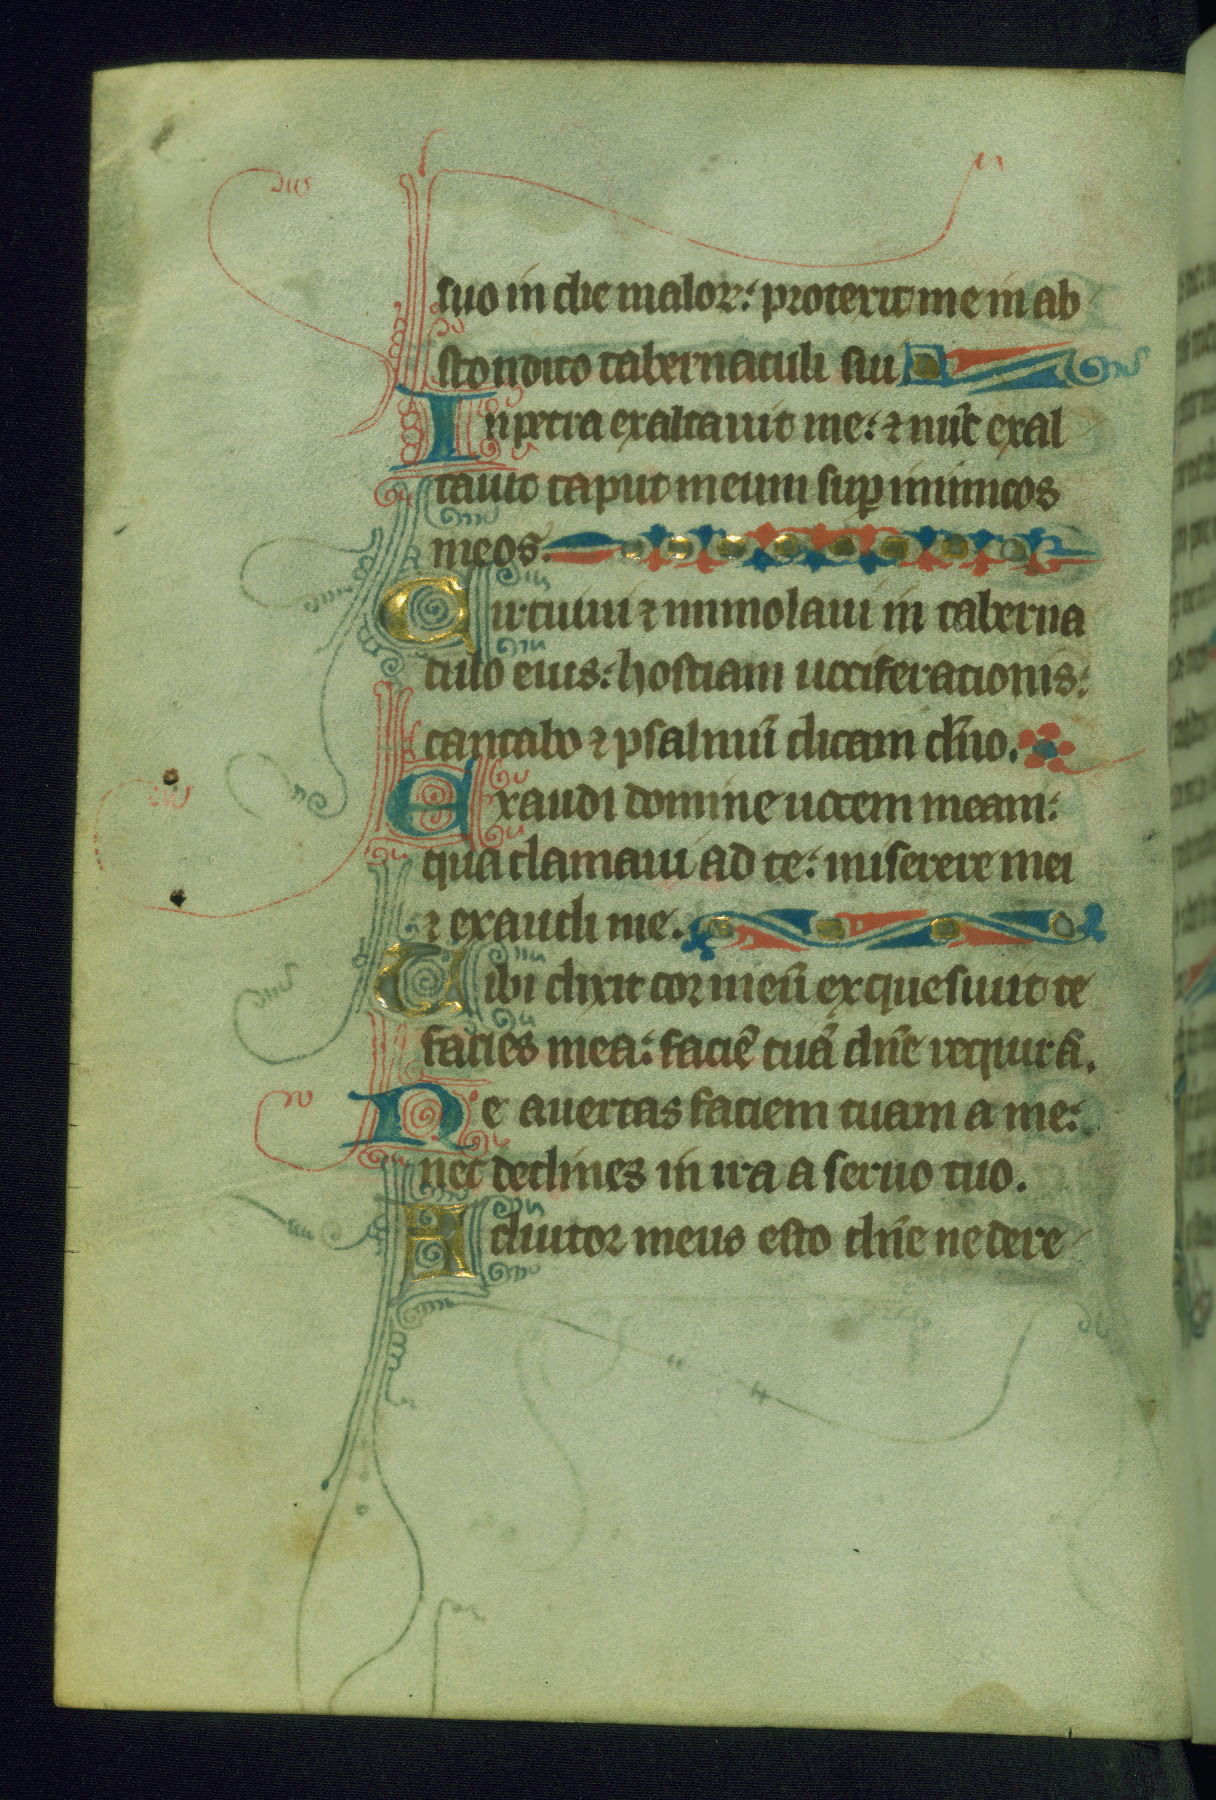 suo in die malor: protexit me in ab
scondito tabernaculi sui
In petra exaltauit me: ⁊ nūc exal
tauit caput meum suꝑ inimicos
meos.
Circuiui ⁊ immolaui in taberna
culo eius: hostiam uociferationis:
cantabo ⁊ psalmū dicam dn̄o.
Exaudi domine uocem meam:
qua clamaui ad te: miserere mei
⁊ exaudi me.
Tibi dixit cor meū exquesiuit te
facies mea: faciē tuā dn̄e requirā.
Ne auertas faciem tuam a me:
nec declines in ira a seruo tuo.
Adiutor meus esto dn̄e ne dere